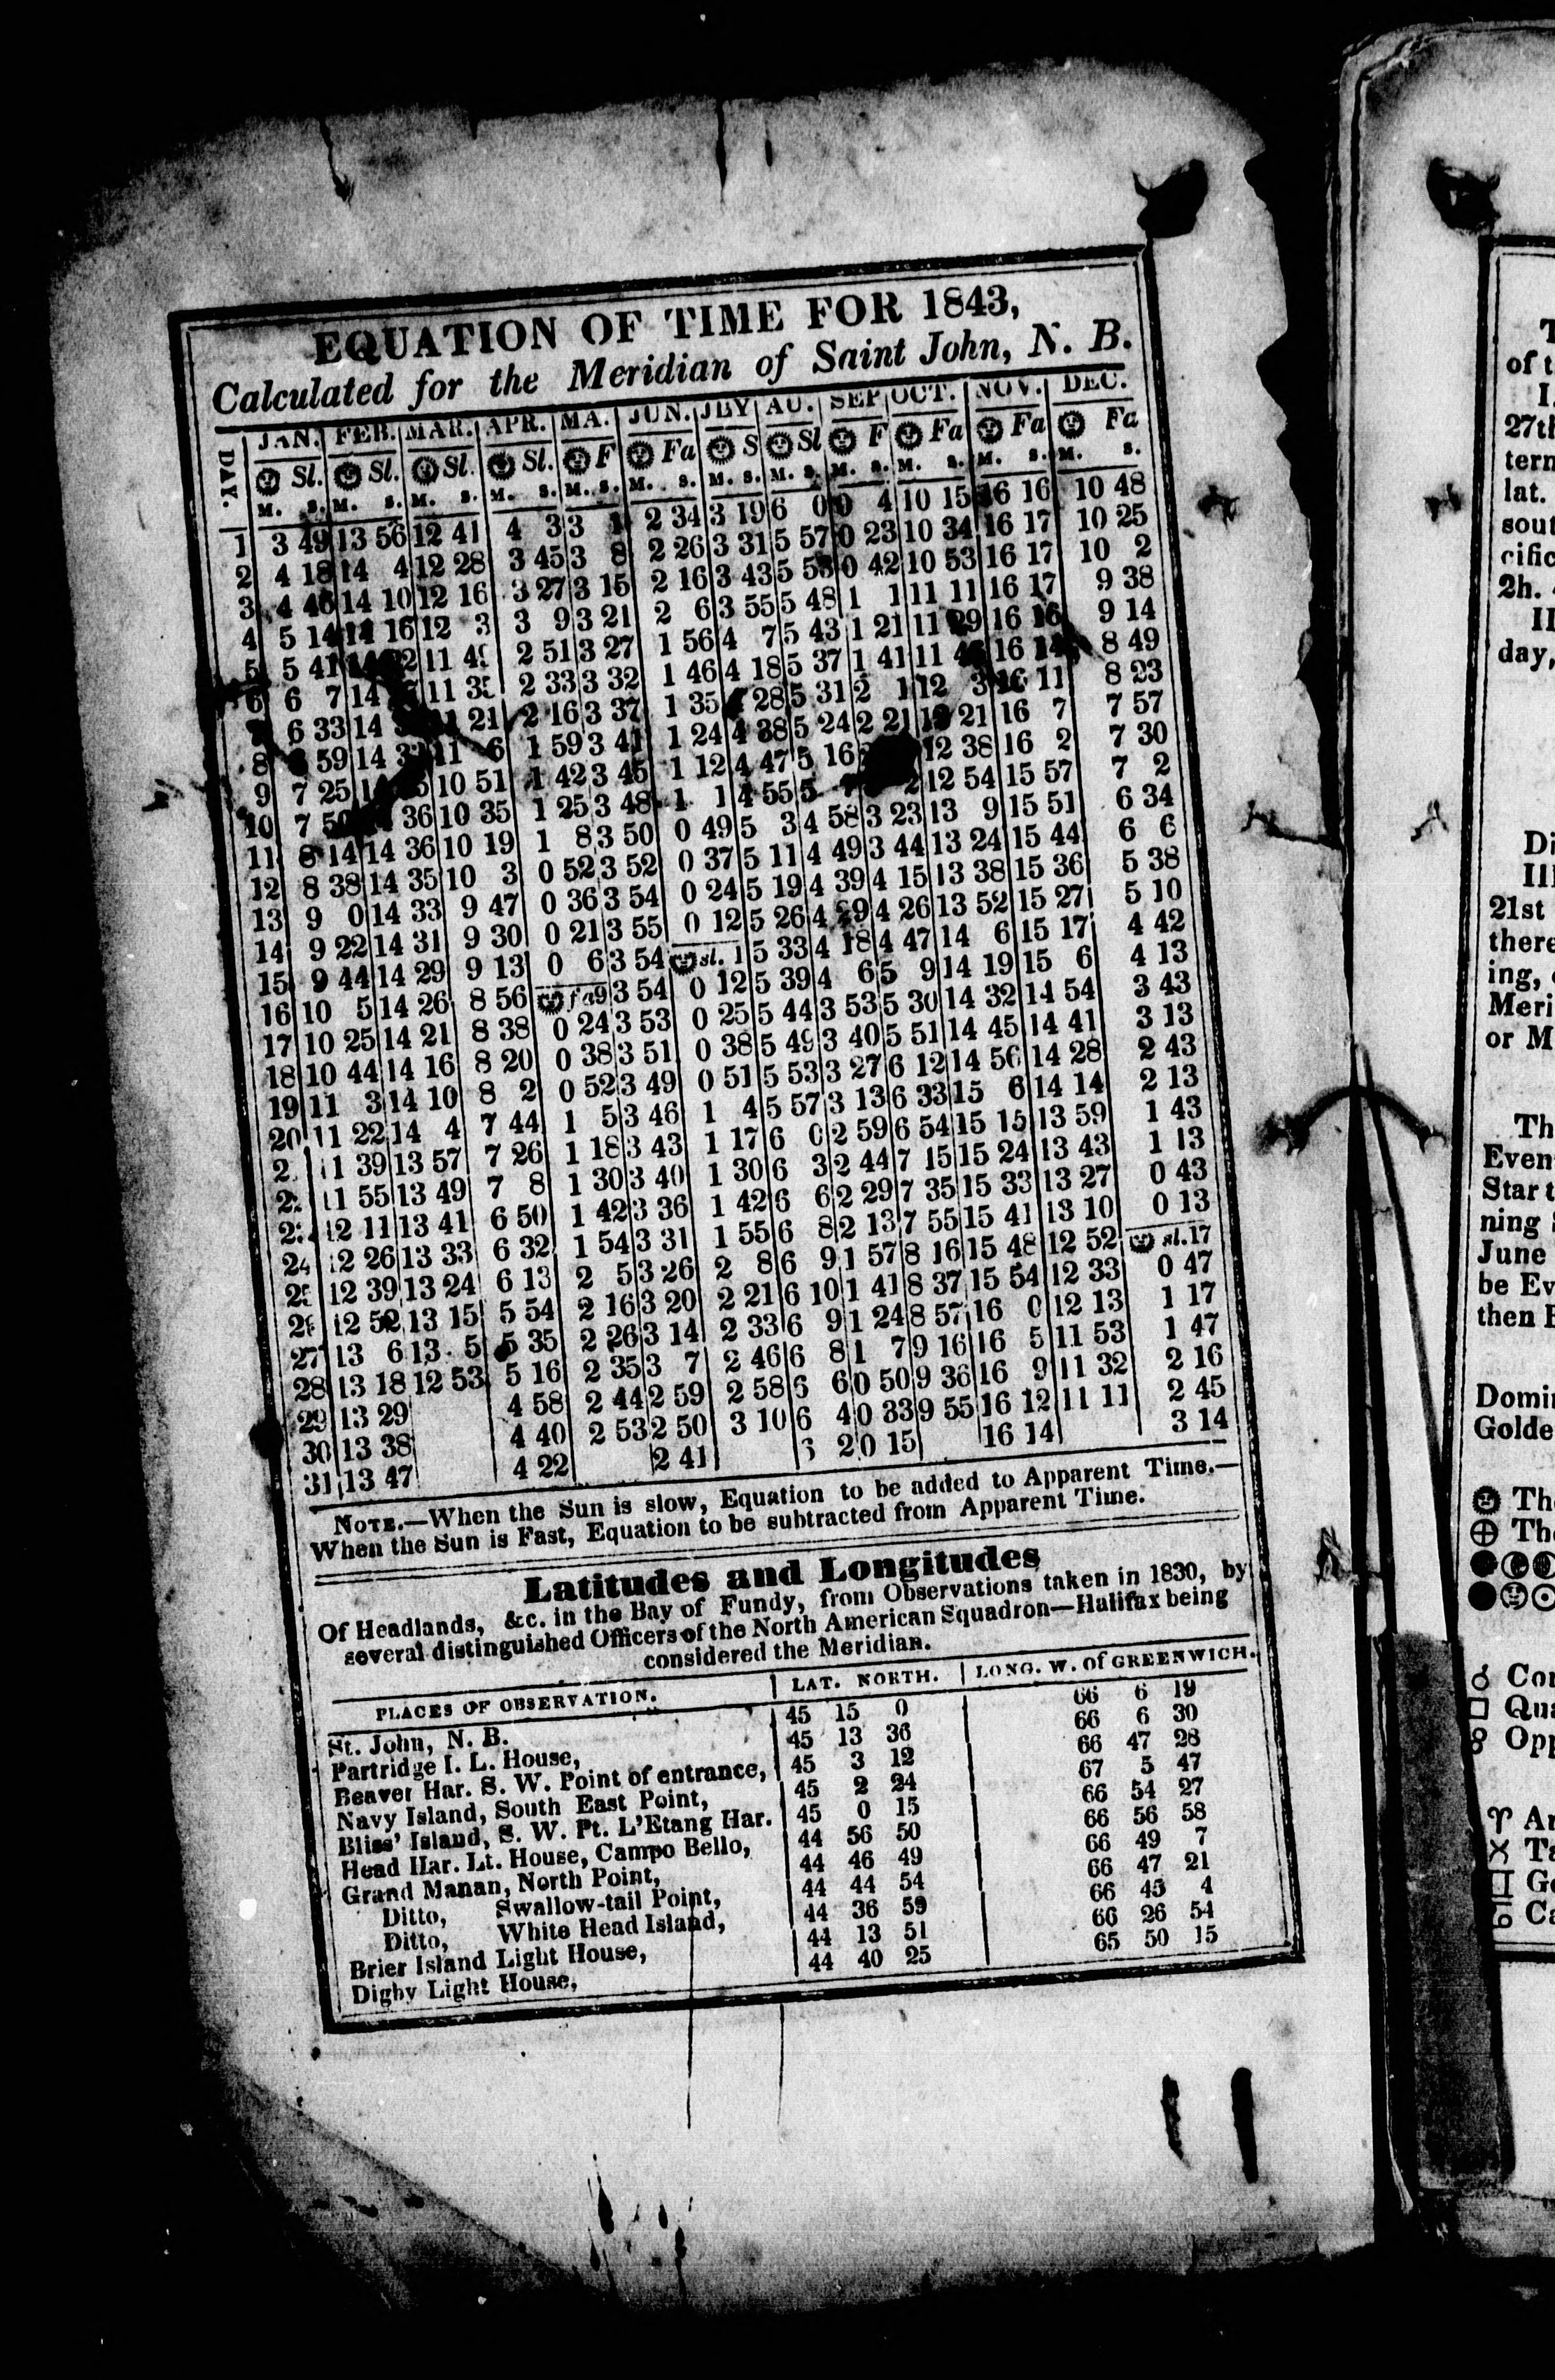 EQUATION OF TIME FOR 1843,
Calculated for the Meridian of Saint John, N. B.
DAY. JAN. FEB. MAR. APR. MA. JUN. JLY AU. SEP OCT. NOV. DEC.
Sl. Sl. Sl. Sl. F Fa S Sl F Fa Fa Fa
M. S. M. S. M. S. M. S. M. S. M. S. M. S. M. S. M. S. M. S. M. S. M. S.
1 3 49 13 56 12 41 4 3 3 1 2 34 3 19 6 0 0 4 10 15 16 16 10 48
2 4 18 14 4 12 28 3 45 3 8 2 26 3 31 5 57 0 23 10 34 16 17 10 25
3 4 46 14 10 12 16 3 27 3 15 2 16 3 43 5 53 0 42 10 53 16 17 10 2
4 5 14 14 16 12 3 3 9 3 21 2 6 3 55 5 48 1 1 11 11 16 17 9 38
5 5 41 11 49 2 51 3 27 1 56 4 7 5 43 1 21 11 29 16 16 9 14
6 6 7 14 11 35 2 33 3 32 1 46 4 18 5 37 1 41 11 16 14 8 49
7 6 33 14 21 2 16 3 37 1 35 28 5 31 2 1 12 3 16 11 8 23
8 59 14 11 6 1 59 3 41 1 24 4 38 5 24 2 21 12 21 16 7 7 57
9 7 25 10 51 1 42 3 45 1 12 4 47 5 16 12 38 16 2 7 30
10 7 50 36 10 35 1 25 3 48 1 1 4 55 5 7 12 54 15 57 7 2
11 8 14 14 36 10 19 1 8 3 50 0 49 5 3 4 58 3 23 13 9 15 51 6 34
12 8 38 14 35 10 3 0 52 3 52 0 37 5 11 4 49 3 44 13 24 15 44 6 6
13 9 0 14 33 9 47 0 36 3 54 0 24 5 19 4 39 4 15 13 38 15 36 5 38
14 9 22 14 31 9 30 0 21 3 55 0 12 5 26 4 29 4 26 13 52 15 27 5 10
15 9 44 14 29 9 13 0 6 3 54 sl. 1 5 33 4 18 4 47 14 6 15 17 4 42
16 10 5 14 26 8 56 fa 9 3 54 0 12 5 39 4 6 5 9 14 19 15 6 4 13
17 10 25 14 21 8 38 0 24 3 53 0 25 5 44 3 53 5 30 14 32 14 54 3 43
18 10 44 14 16 8 20 0 38 3 51 0 38 5 49 3 40 5 51 14 45 14 41 3 13
19 11 3 14 10 8 2 0 52 3 49 0 51 5 53 3 27 6 12 14 56 14 28 2 43
20 11 22 14 4 7 44 1 5 3 46 1 4 5 57 3 13 6 33 15 6 14 14 2 13
2 11 39 13 57 7 26 1 18 3 43 1 17 6 0 2 59 6 54 15 15 13 59 1 43
2 11 55 13 49 7 8 1 30 3 40 1 30 6 3 2 44 7 15 15 24 13 43 1 13
2 12 11 13 41 6 50 1 42 3 36 1 42 6 6 2 29 7 35 15 33 13 27 0 43
24 12 26 13 33 6 32 1 54 3 31 1 55 6 8 2 13 7 55 15 41 13 10 0 13
25 12 39 13 24 6 13 2 5 3 26 2 8 6 9 1 57 8 16 15 48 12 52 sl. 17
26 12 52 13 15 5 54 2 16 3 20 2 21 6 10 1 41 8 37 15 54 12 33 0 47
27 13 6 13 5 5 35 2 26 3 14 2 33 6 9 1 24 8 57 16 0 12 13 1 17
28 13 18 12 53 5 16 2 35 3 7 2 46 6 8 1 7 9 16 16 5 11 53 1 47
29 13 29 4 58 2 44 2 59 2 58 6 6 0 50 9 36 16 9 11 32 2 16
30 13 38 4 40 2 53 2 50 3 10 6 4 0 33 9 55 16 12 11 11 2 45
31 13 47 4 22 2 41 2 0 15 16 14 3 14
NOTE.—When the Sun is slow, Equation to be added to Apparent Time.—
When the Sun is Fast, Equation to be subtracted from Apparent Time.
Latitudes and Longitudes
Of Headlands, &c. in the Bay of Fundy, from Observations taken in 1830, by
several distinguished Officers of the North American Squadron—Halifax being
considered the Meridian.
PLACES OF OBSERVATION. LAT. NORTH. LONG. W. Of GREENWICH.
St. John, N. B. 45 15 0 66 6 19
Partridge I. L. House, 45 13 36 66 6 30
Beaver Har. S. W. Point of entrance, 45 3 12 66 47 28
Navy Island, South East Point, 45 2 24 67 5 47
Bliss' Island, S. W. Pt. L'Etang Har. 45 0 15 66 54 27
Head Har. Lt. House, Campo Bello, 44 56 50 66 56 58
Grand Manan, North Point, 44 46 49 66 49 7
Ditto, Swallow-tail Point, 44 44 54 66 47 21
Ditto, White Head Island, 44 36 59 66 45 4
Brier Island Light House, 44 13 51 66 26 54
Digby Light House. 44 40 25 65 50 15
of t
27th
tern
lat.
sout
cific
2h.
II
day,
Di
III
21st
there
ing,
Meri
or M
Th
Even
Star t
ning
June
be Ev
then E
Domin
Golde
Th
Th
Con
Qua
Opp
Ar
Ta
Ge
Ca